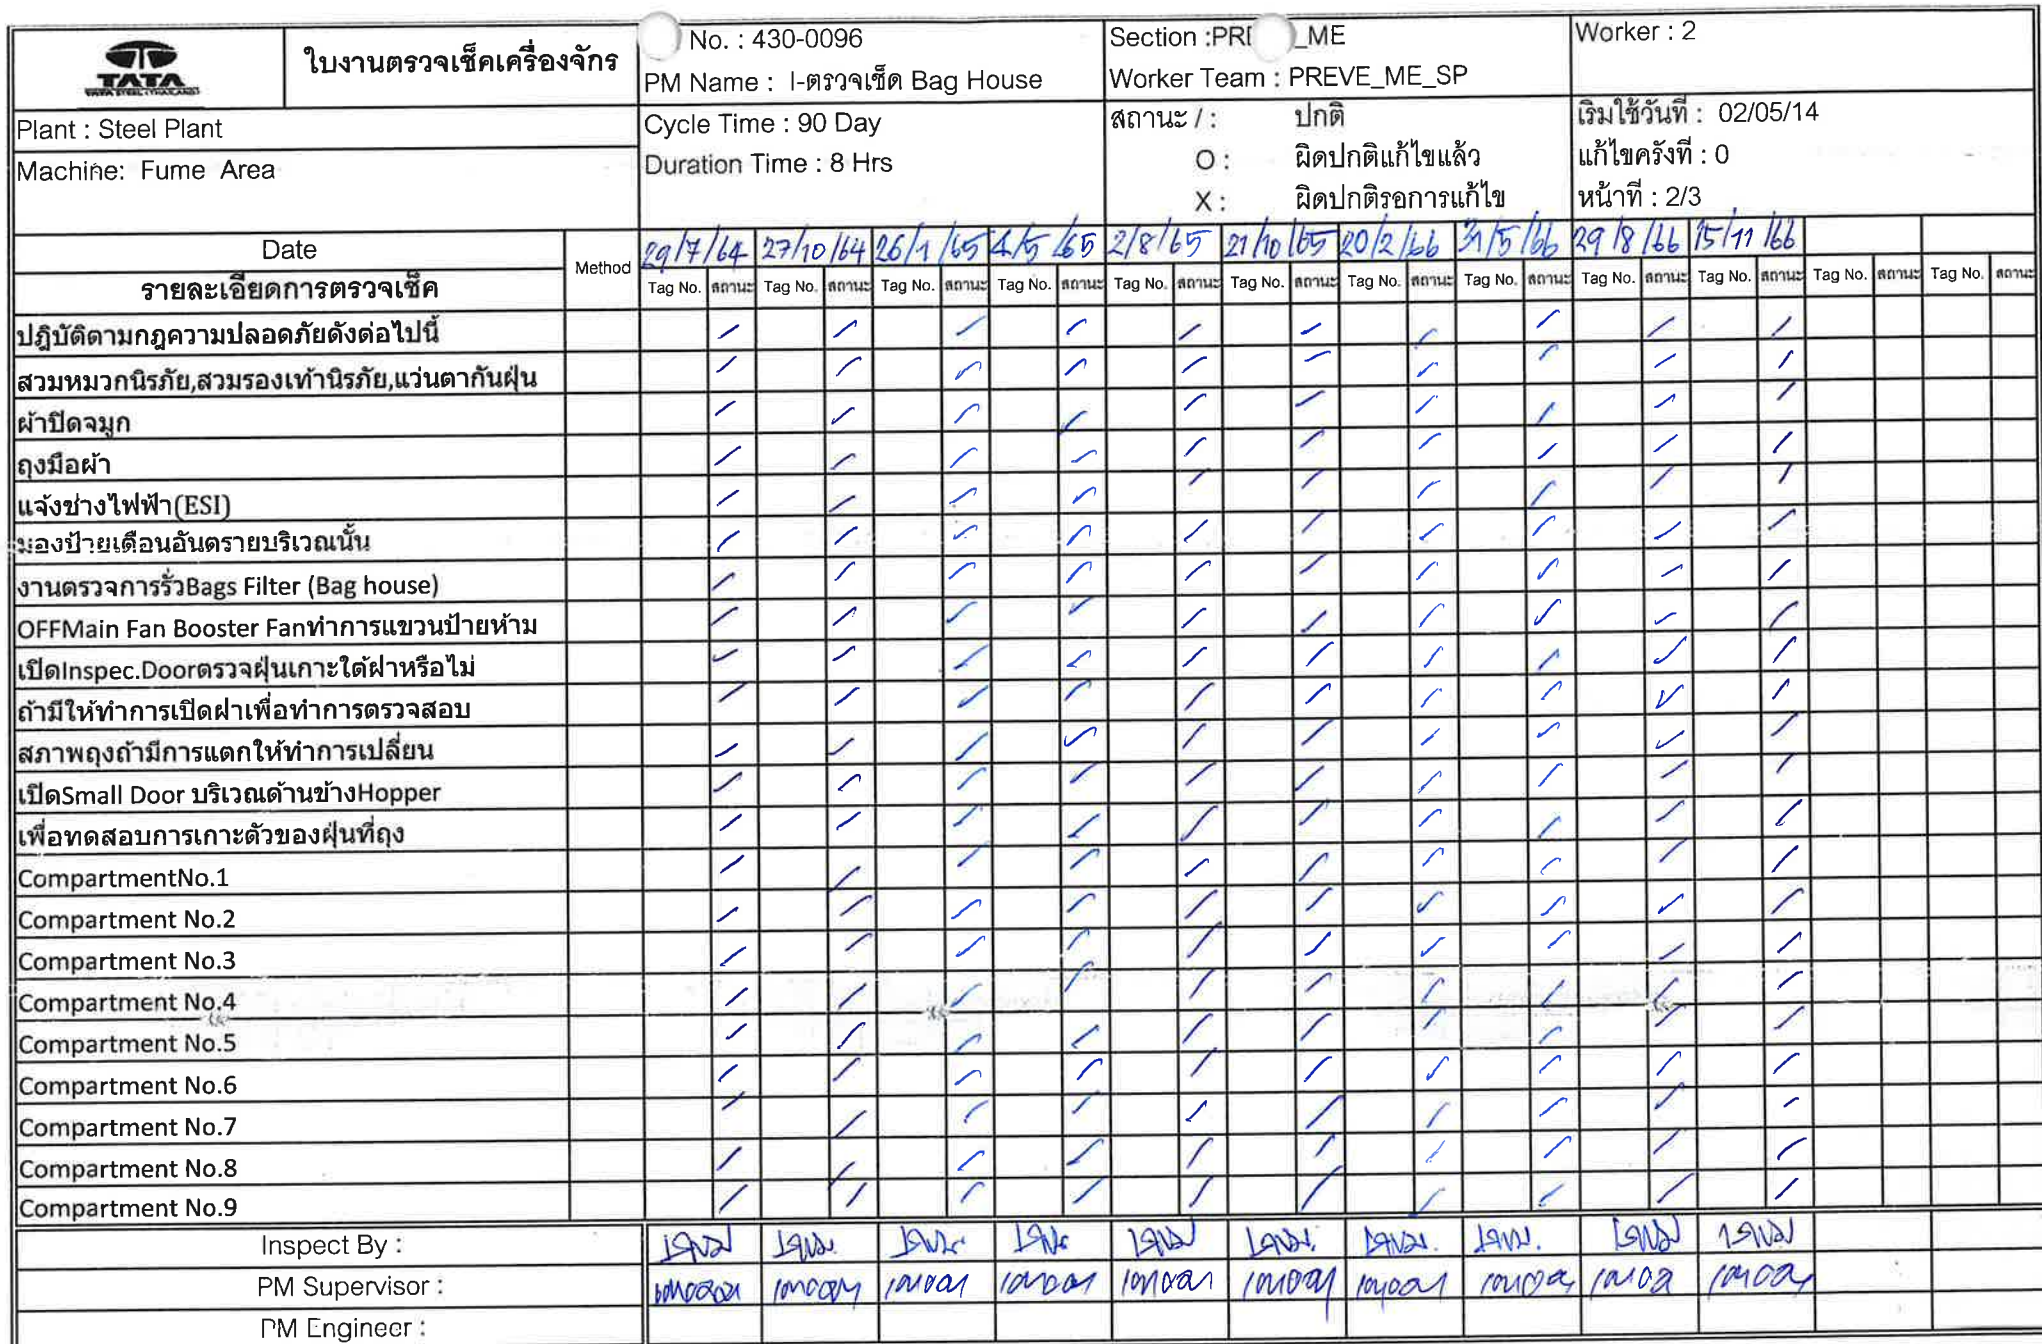 TATA
TATA STEEL (THAILAND)
ใบงานตรวจเช็คเครื่องจักร
No. : 430-0096
Section :PRE _ME
Worker : 2
PM Name : I-ตรวจเช็ด Bag House
Worker Team : PREVE_ME_SP
Plant : Steel Plant
Cycle Time : 90 Day
สถานะ / : ปกติ
เริ่มใช้วันที่ : 02/05/14
Machine: Fume Area
Duration Time : 8 Hrs
O : ผิดปกติแก้ไขแล้ว
แก้ไขครั้งที่ : 0
X : ผิดปกติรอการแก้ไข
หน้าที่ : 2/3
Date Method 29/7/64 27/10/64 26/1/65 4/5/65 2/8/65 21/10/65 20/2/66 31/5/66 29/8/66 15/11/66
รายละเอียดการตรวจเช็ค Tag No. สถานะ Tag No. สถานะ Tag No. สถานะ Tag No. สถานะ Tag No. สถานะ Tag No. สถานะ Tag No. สถานะ Tag No. สถานะ Tag No. สถานะ Tag No. สถานะ Tag No. สถานะ Tag No. สถานะ
ปฎิบัติตามกฎความปลอดภัยดังต่อไปนี้ / / / / / / / / / /
สวมหมวกนิรภัย,สวมรองเท้านิรภัย,แว่นตากันฝุ่น / / / / / / / / / /
ผ้าปิดจมูก / / / / / / / / / /
ถุงมือผ้า / / / / / / / / / /
แจ้งช่างไฟฟ้า(ESI) / / / / / / / / / /
มองป้ายเตือนอันตรายบริเวณนั้น / / / / / / / / / /
งานตรวจการรั่วBags Filter (Bag house) / / / / / / / / / /
OFFMain Fan Booster Fanทำการแขวนป้ายห้าม / / / / / / / / / /
เปิดInspec.Doorตรวจฝุ่นเกาะใต้ฝาหรือไม่ / / / / / / / / / /
ถ้ามีให้ทำการเปิดฝาเพื่อทำการตรวจสอบ / / / / / / / / / /
สภาพถุงถ้ามีการแตกให้ทำการเปลี่ยน / / / / / / / / / /
เปิดSmall Door บริเวณด้านข้างHopper / / / / / / / / / /
เพื่อทดสอบการเกาะตัวของฝุ่นที่ถุง / / / / / / / / / /
CompartmentNo.1 / / / / / / / / / /
Compartment No.2 / / / / / / / / / /
Compartment No.3 / / / / / / / / / /
Compartment No.4 / / / / / / / / / /
Compartment No.5 / / / / / / / / / /
Compartment No.6 / / / / / / / / / /
Compartment No.7 / / / / / / / / / /
Compartment No.8 / / / / / / / / / /
Compartment No.9 / / / / / / / / / /
Inspect By :
PM Supervisor :
PM Engineer :